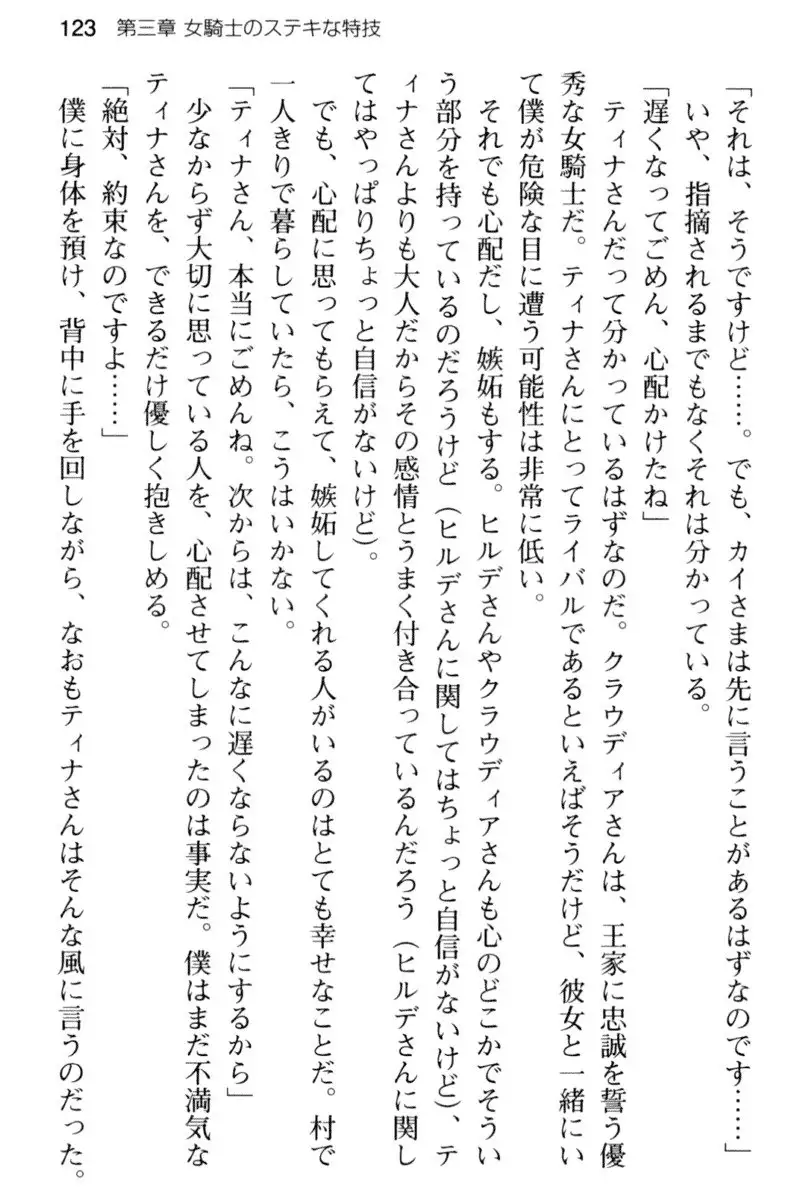 123 第三章 女騎士のステキな特技
「それは、そうですけど……。でも、カイさまは先に言うことがあるはずなのです……」
いや、指摘されるまでもなくそれは分かっている。
「遅くなってごめん、心配かけたね」
ティナさんだって分かっているはずなのだ。クラウディアさんは、王家に忠誠を誓う優
秀な女騎士だ。ティナさんにとってライバルであるといえばそうだけど、彼女と一緒にい
て僕が危険な目に遭う可能性は非常に低い。
それでも心配だし、嫉妬もする。ヒルデさんやクラウディアさんも心のどこかでそうい
う部分を持っているのだろうけど（ヒルデさんに関してはちょっと自信がないけど）、テ
ィナさんよりも大人だからその感情とうまく付き合っているんだろう（ヒルデさんに関し
てはやっぱりちょっと自信がないけど）。
でも、心配に思ってもらえて、嫉妬してくれる人がいるのはとても幸せなことだ。村で
一人きりで暮らしていたら、こうはいかない。
「ティナさん、本当にごめんね。次からは、こんなに遅くならないようにするから」
少なからず大切に思っている人を、心配させてしまったのは事実だ。僕はまだ不満気な
ティナさんを、できるだけ優しく抱きしめる。
「絶対、約束なのですよ……」
僕に身体を預け、背中に手を回しながら、なおもティナさんはそんな風に言うのだった。